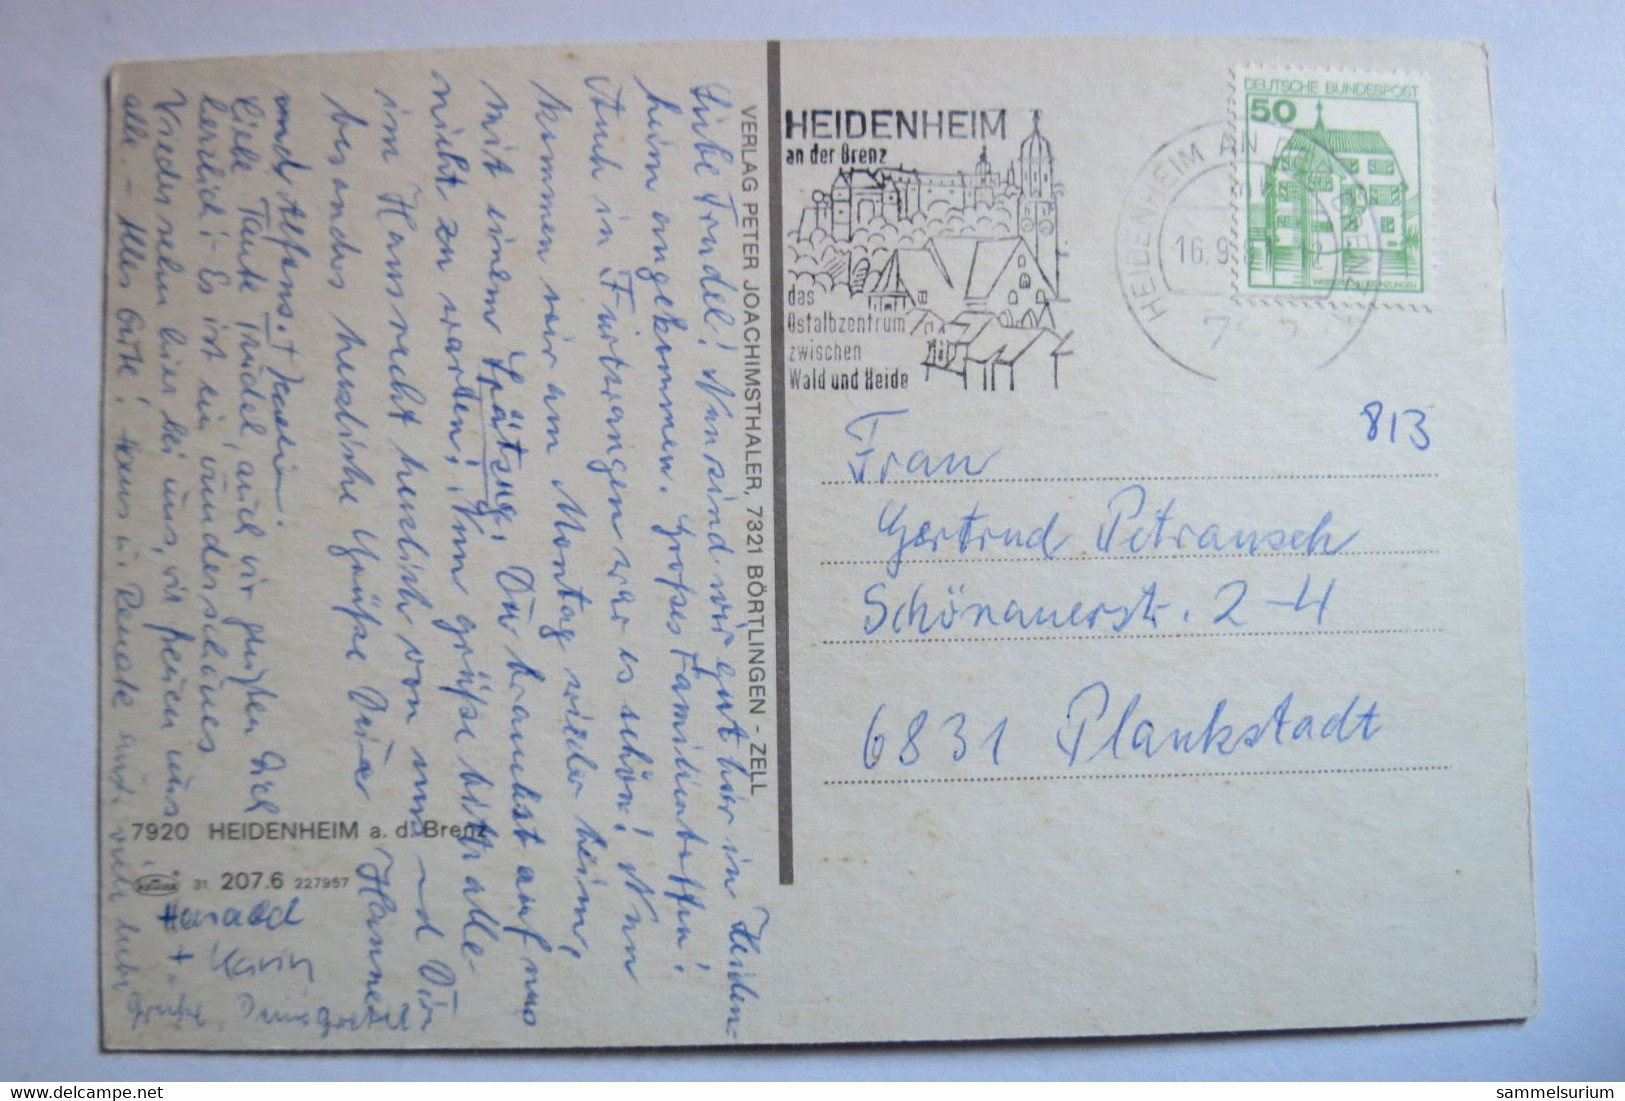 Liebe Trudel! Nun sind wir gut hier in Heiden-
heim angekommen. Großes Familientreffen!
Auch in Furtwangen war es schön! Nun
kommen wir am Montag wieder heim,
mit einem Spätzug. Du brauchst auf uns
nicht zu warten! Nun grüße bitte alle
im Haus recht herzlich von uns und Dir
besonders herzliche Grüße Deine Hanne
und Alfons.
Liebe Tante Trudel, auch wir grüßen Dich
herzlich! Es ist ein wunderschönes
Wiedersehn hier bei uns, wir freuen uns
alle. - Alles Gute! Hans u. Renate
Harald
+ Karin
VERLAG PETER JOACHIMSTHALER, 7321 BÖRTLINGEN - ZELL
7920 HEIDENHEIM a. d. Brenz
31 207.6 227957
HEIDENHEIM
an der Brenz
das
Ostalbzentrum
zwischen
Wald und Heide
HEIDENHEIM AN DER BRENZ
16.9.
DEUTSCHE BUNDESPOST
50
813
Frau
Gertrud Petrausch
Schönauerstr. 2-4
6831 Plankstadt
sammelsurium